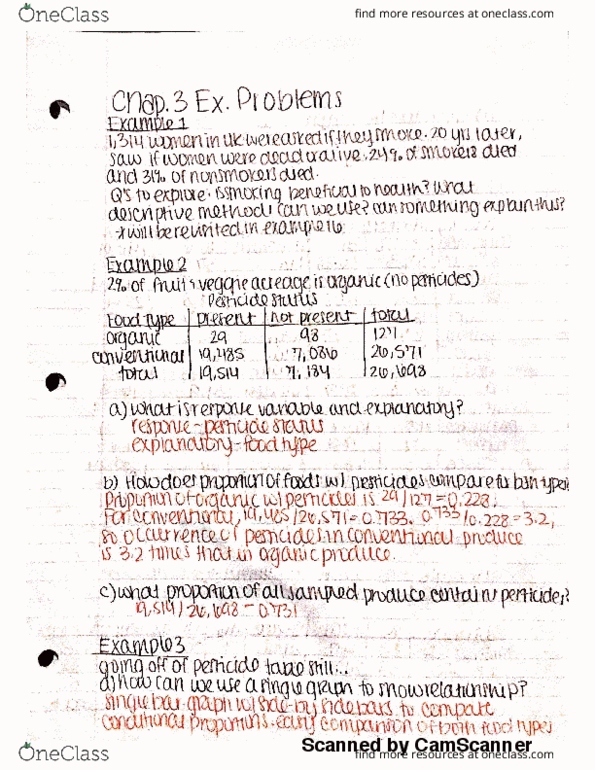 OneClass
find more resources at oneclass.com
Chap. 3 Ex. Problems
Example 1
1,314 women in UK were asked if they smoke. 20 yrs later,
saw if women were dead or alive. 24% of smokers died
and 31% of nonsmokers died.
Q's to explore: is smoking beneficial to health? What
descriptive method can we use? can something explain this?
will be reunited in example 16
Example 2
2% of fruit & veggie acreage is organic (no pesticides)
Pesticide status
Food Type present not present total
organic 29 98 127
conventional 19,485 7,086 26,571
total 19,514 7,184 26,698
a) what is response variable and explanatory?
response - pesticide status
explanatory - food type
b) How does proportion of foods w/ pesticides compare for both types?
Proportion of organic w/ pesticides is 29/127 = 0.228.
For conventional, 19,485/26,571 = 0.7333. 0.733/0.228 = 3.2,
so occurrence of pesticides in conventional produce
is 3.2 times that in organic produce.
c) what proportion of all sampled produce contains pesticides?
19,514/26,698 = 0.731
Example 3
going off of pesticide table still...
a) how can we use a single graph to show relationship?
single bar graph w/ side-by side bars to compare
conditional proportions - easy comparison of both food types
OneClass
Scanned by CamScanner
find more resources at oneclass.com